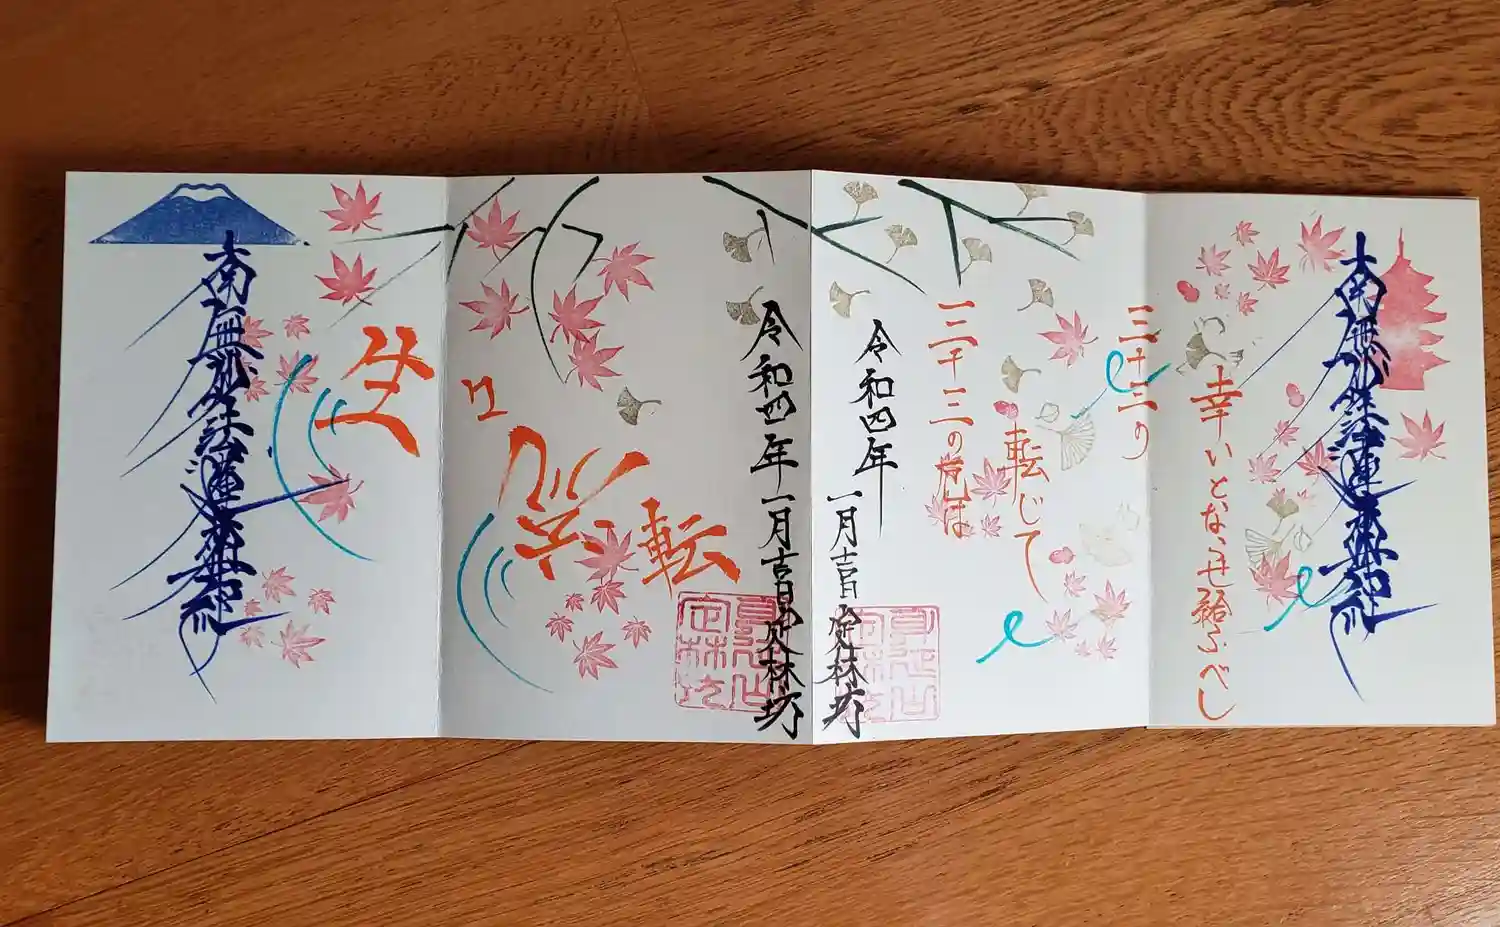 南無妙法蓮華経
転
令和四年
一月吉日
定林坊
身延山
定林坊
令和四年
一月吉日
定林坊
身延山
定林坊
三十三の厄は
転じて
三十三の
幸いとならせ給ふべし
南無妙法蓮華経